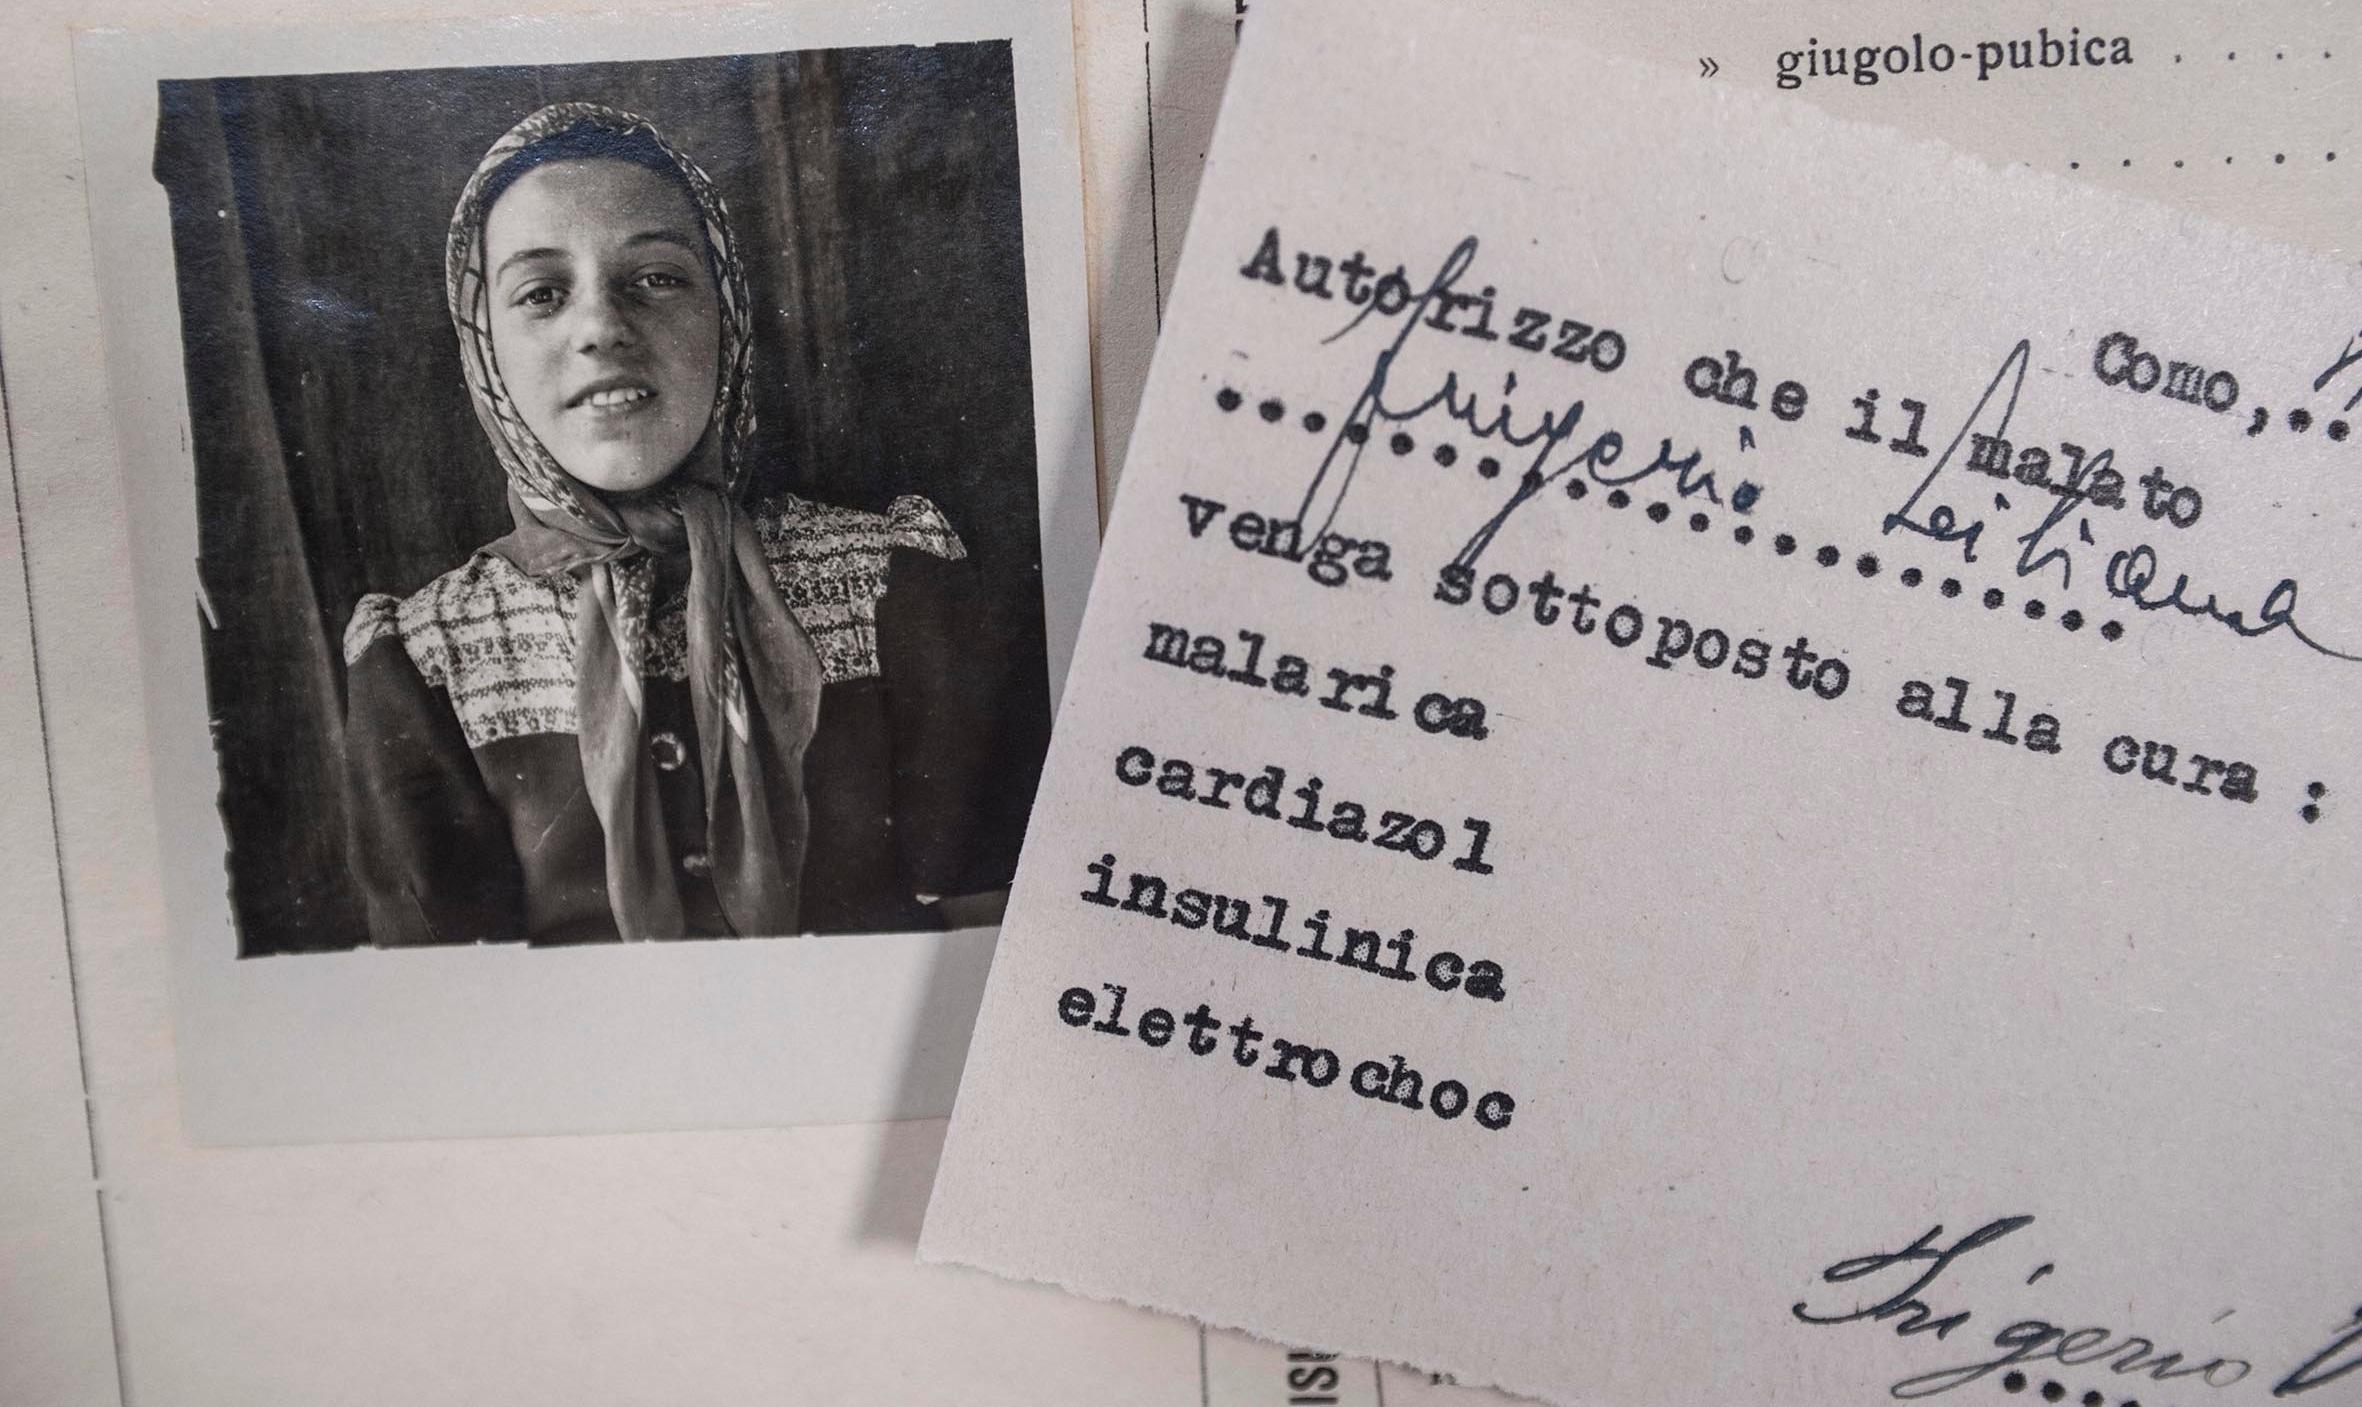 » giugolo-pubica . . . .
. . . . . . .
Como,..
Autorizzo che il malato
Frigerio Liliana
venga sottoposto alla cura :
malarica
cardiazol
insulinica
elettrochoc
Frigerio